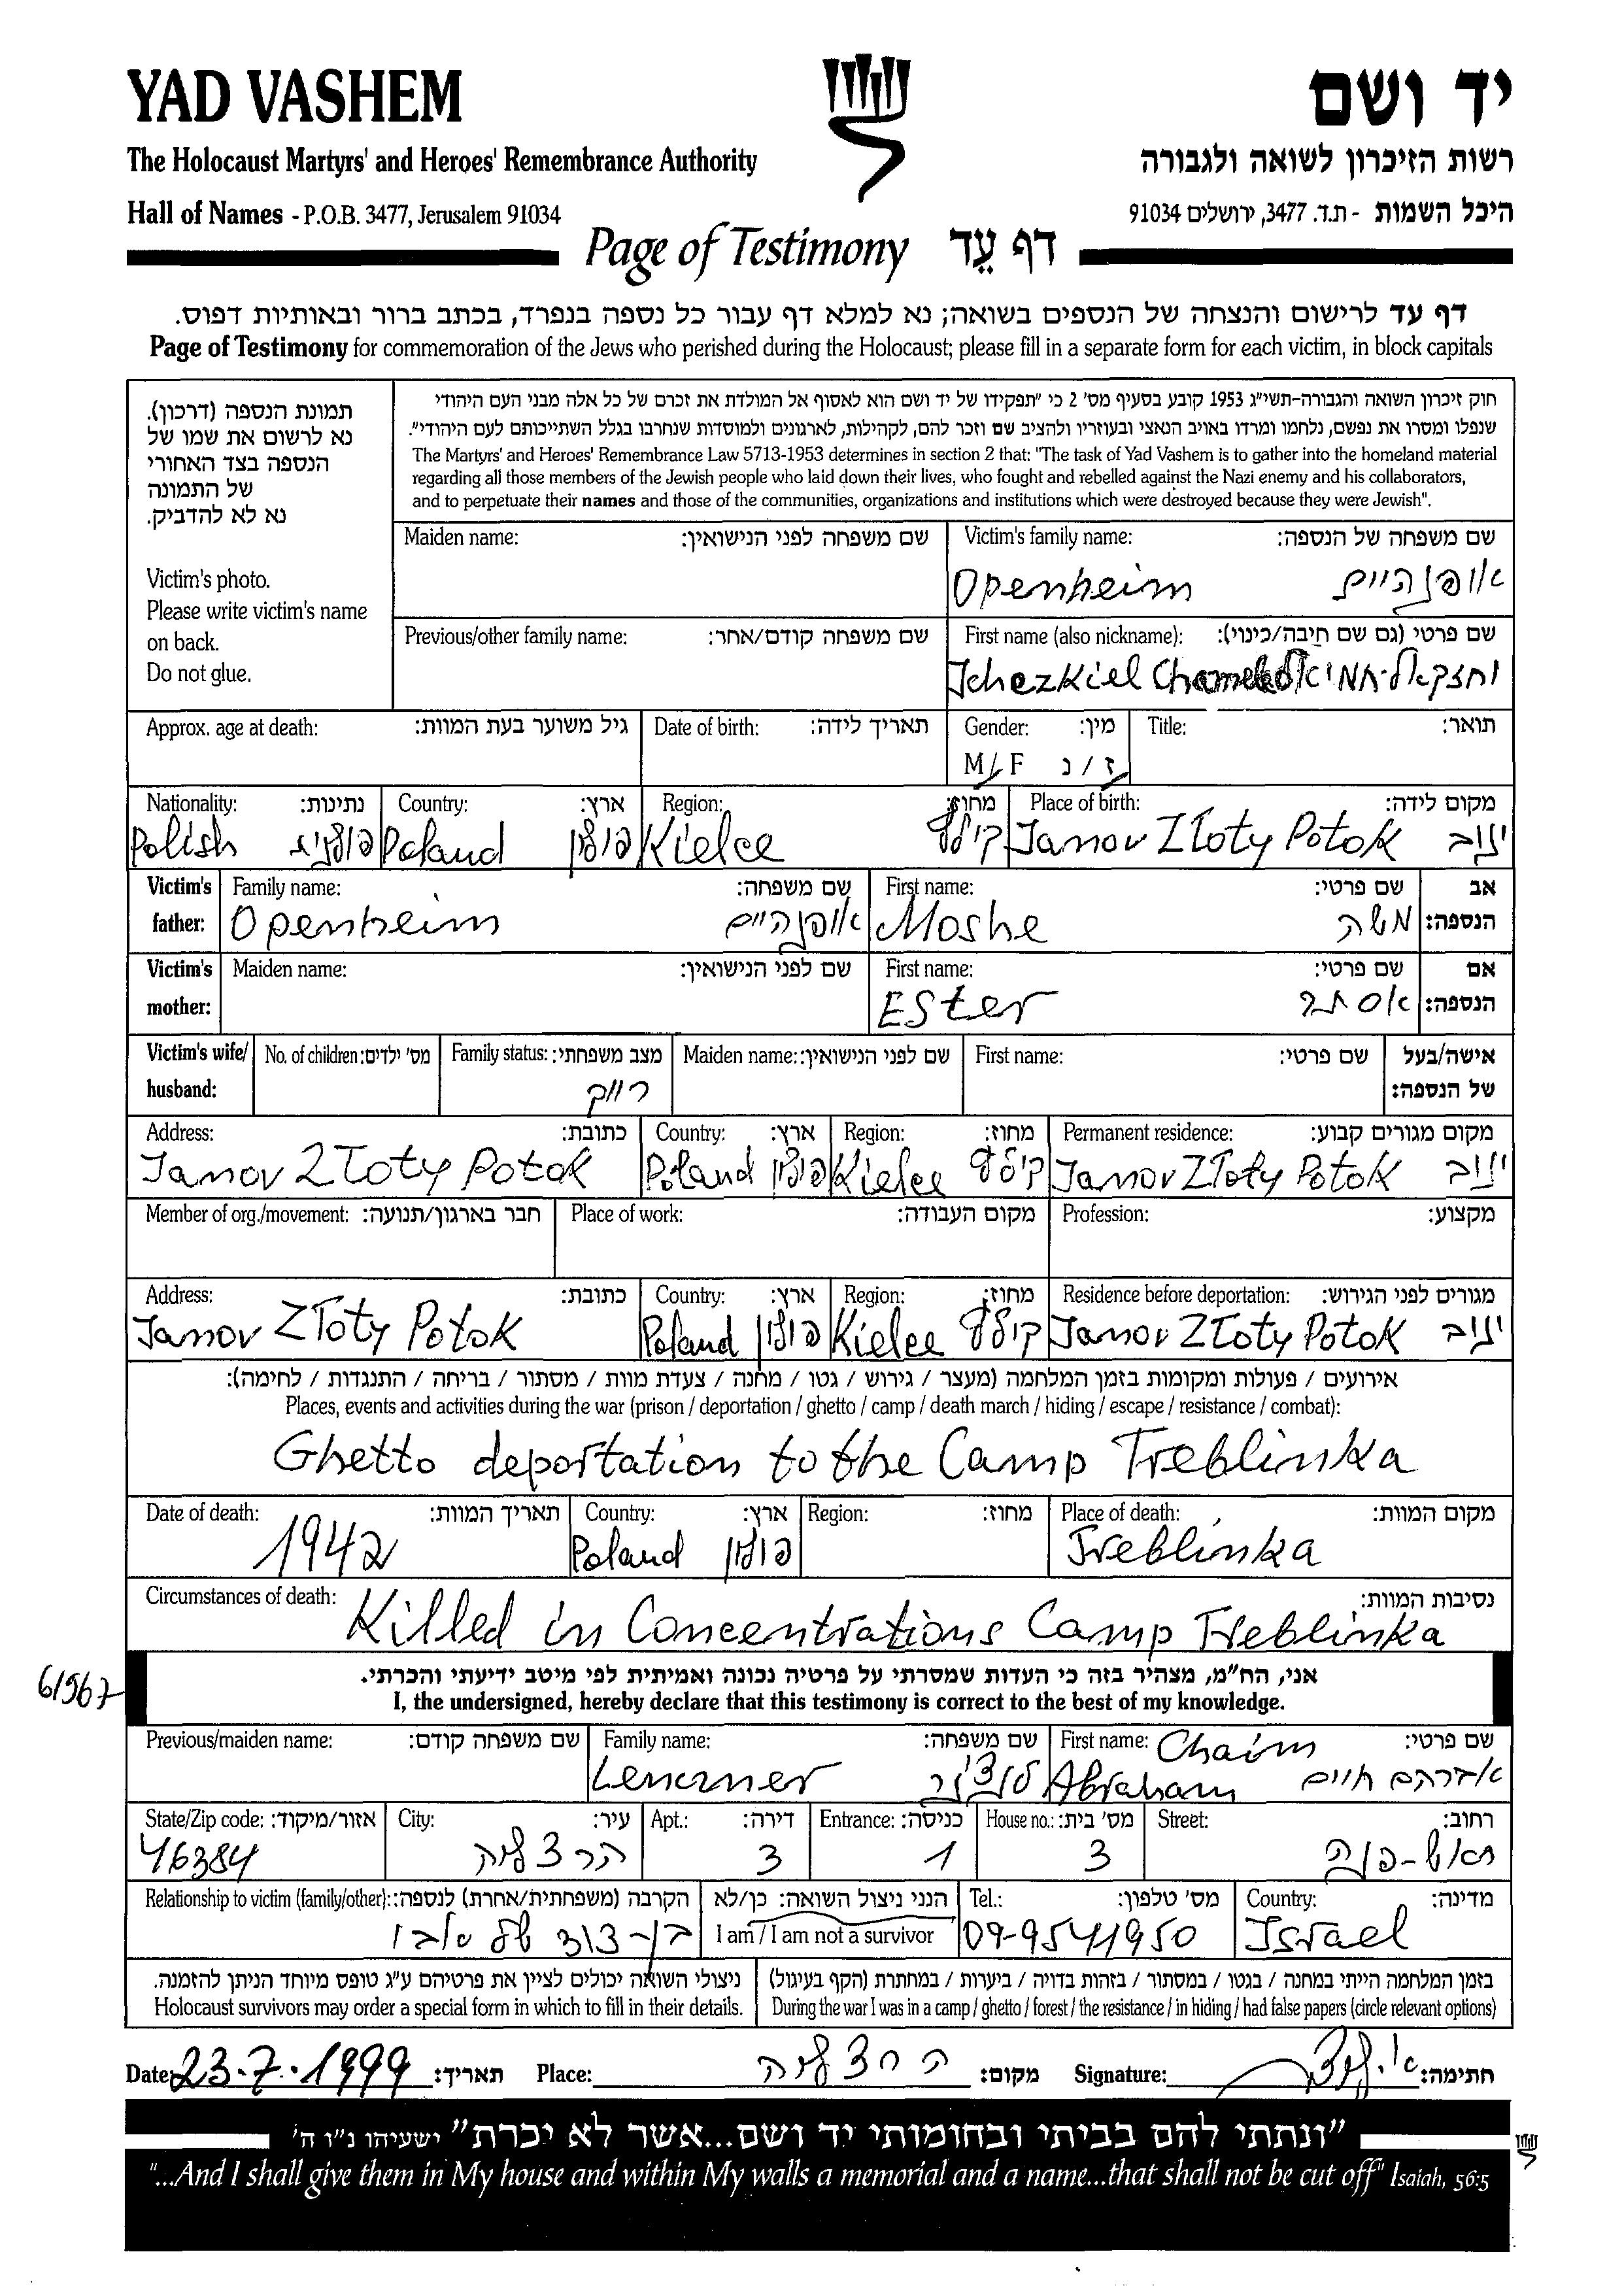 YAD VASHEM
יד ושם
The Holocaust Martyrs' and Heroes' Remembrance Authority
רשות הזיכרון לשואה ולגבורה
Hall of Names - P.O.B. 3477, Jerusalem 91034
היכל השמות - ת.ד. 3477, ירושלים 91034
Page of Testimony דף עֵד
דף עד לרישום והנצחה של הנספים בשואה; נא למלא דף עבור כל נספה בנפרד, בכתב ברור ובאותיות דפוס.
Page of Testimony for commemoration of the Jews who perished during the Holocaust; please fill in a separate form for each victim, in block capitals
תמונת הנספה (דרכון).
נא לרשום את שמו של
הנספה בצד האחורי
של התמונה
נא לא להדביק.
Victim's photo.
Please write victim's name
on back.
Do not glue.
חוק זיכרון השואה והגבורה-תשי"ג 1953 קובע בסעיף מס' 2 כי "תפקידו של יד ושם הוא לאסוף אל המולדת את זכרם של כל אלה מבני העם היהודי
שנפלו ומסרו את נפשם, נלחמו ומרדו באויב הנאצי ובעוזריו ולהציב שם וזכר להם, לקהילות, לארגונים ולמוסדות שנחרבו בגלל השתייכותם לעם היהודי".
The Martyrs' and Heroes' Remembrance Law 5713-1953 determines in section 2 that: "The task of Yad Vashem is to gather into the homeland material
regarding all those members of the Jewish people who laid down their lives, who fought and rebelled against the Nazi enemy and his collaborators,
and to perpetuate their names and those of the communities, organizations and institutions which were destroyed because they were Jewish".
Maiden name: שם משפחה לפני הנישואין:
Victim's family name: שם משפחה של הנספה:
Openheim אופנהיים
Previous/other family name: שם משפחה קודם/אחר:
First name (also nickname): שם פרטי (גם שם חיבה/כינוי):
Jchezkiel יחזקאל
Approx. age at death: גיל משוער בעת המוות:
Date of birth: תאריך לידה:
Gender: מין:
M/F ז/נ
Title: תואר:
Nationality: נתינות:
Polish פולנית
Country: ארץ:
Poland פולין
Region: מחוז:
Kielce קילצ
Place of birth: מקום לידה:
Janov Złoty Potok ינוב
Victim's father: אב הנספה:
Family name: שם משפחה:
Openheim אופנהיים
First name: שם פרטי:
Moshe משה
Victim's mother: אם הנספה:
Maiden name: שם לפני הנישואין:
First name: שם פרטי:
Ester אסתר
Victim's wife/ husband: אישה/בעל של הנספה:
No. of children: מס' ילדים:
Family status: מצב משפחתי:
רווק
Maiden name: שם לפני הנישואין:
First name: שם פרטי:
Address: כתובת:
Janov Złoty Potok
Country: ארץ:
Poland פולין
Region: מחוז:
Kielce קילצ
Permanent residence: מקום מגורים קבוע:
Janov Złoty Potok ינוב
Member of org./movement: חבר בארגון/תנועה:
Place of work: מקום העבודה:
Profession: מקצוע:
Address: כתובת:
Janov Złoty Potok
Country: ארץ:
Poland פולין
Region: מחוז:
Kielce קילצ
Residence before deportation: מגורים לפני הגירוש:
Janov Złoty Potok ינוב
אירועים / פעולות ומקומות בזמן המלחמה (מעצר / גירוש / גטו / מחנה / צעדת מוות / מסתור / בריחה / התנגדות / לחימה):
Places, events and activities during the war (prison / deportation / ghetto / camp / death march / hiding / escape / resistance / combat):
Ghetto deportation to the Camp Treblinka
Date of death: תאריך המוות:
1942
Country: ארץ:
Poland פולין
Region: מחוז:
Place of death: מקום המוות:
Treblinka
Circumstances of death: נסיבות המוות:
Killed in Concentrations Camp Treblinka
אני, הח"מ, מצהיר בזה כי העדות שמסרתי על פרטיה נכונה ואמיתית לפי מיטב ידיעתי והכרתי.
I, the undersigned, hereby declare that this testimony is correct to the best of my knowledge.
61967
Previous/maiden name: שם משפחה קודם:
Family name: שם משפחה:
Lenczner לנצ'נר
First name: שם פרטי:
Chaim
Abraham אברהם חיים
State/Zip code: אזור/מיקוד:
46384
City: עיר:
הרצליה
Apt.: דירה:
3
Entrance: כניסה:
1
House no.: מס' בית:
3
Street: רחוב:
ראש-פנה
Relationship to victim (family/other): הקרבה (משפחתית/אחרת) לנספה:
בן-דוד של אבי
הנני ניצול השואה: כן/לא
I am / I am not a survivor
Tel.: מס' טלפון:
09-9541950
Country: מדינה:
Israel
ניצולי השואה יכולים לציין את פרטיהם ע"ג טופס מיוחד הניתן להזמנה.
Holocaust survivors may order a special form in which to fill in their details.
בזמן המלחמה הייתי במחנה / בגטו / במסתור / בזהות בדויה / ביערות / במחתרת (הקף בעיגול)
During the war I was in a camp / ghetto / forest / the resistance / in hiding / had false papers (circle relevant options)
Date: 23.7.1999 תאריך:
Place: הרצליה מקום:
Signature: חתימה:
"ונתתי להם בביתי ובחומותי יד ושם...אשר לא יכרת" ישעיהו נ"ו ה'
"...And I shall give them in My house and within My walls a memorial and a name...that shall not be cut off" Isaiah, 56:5